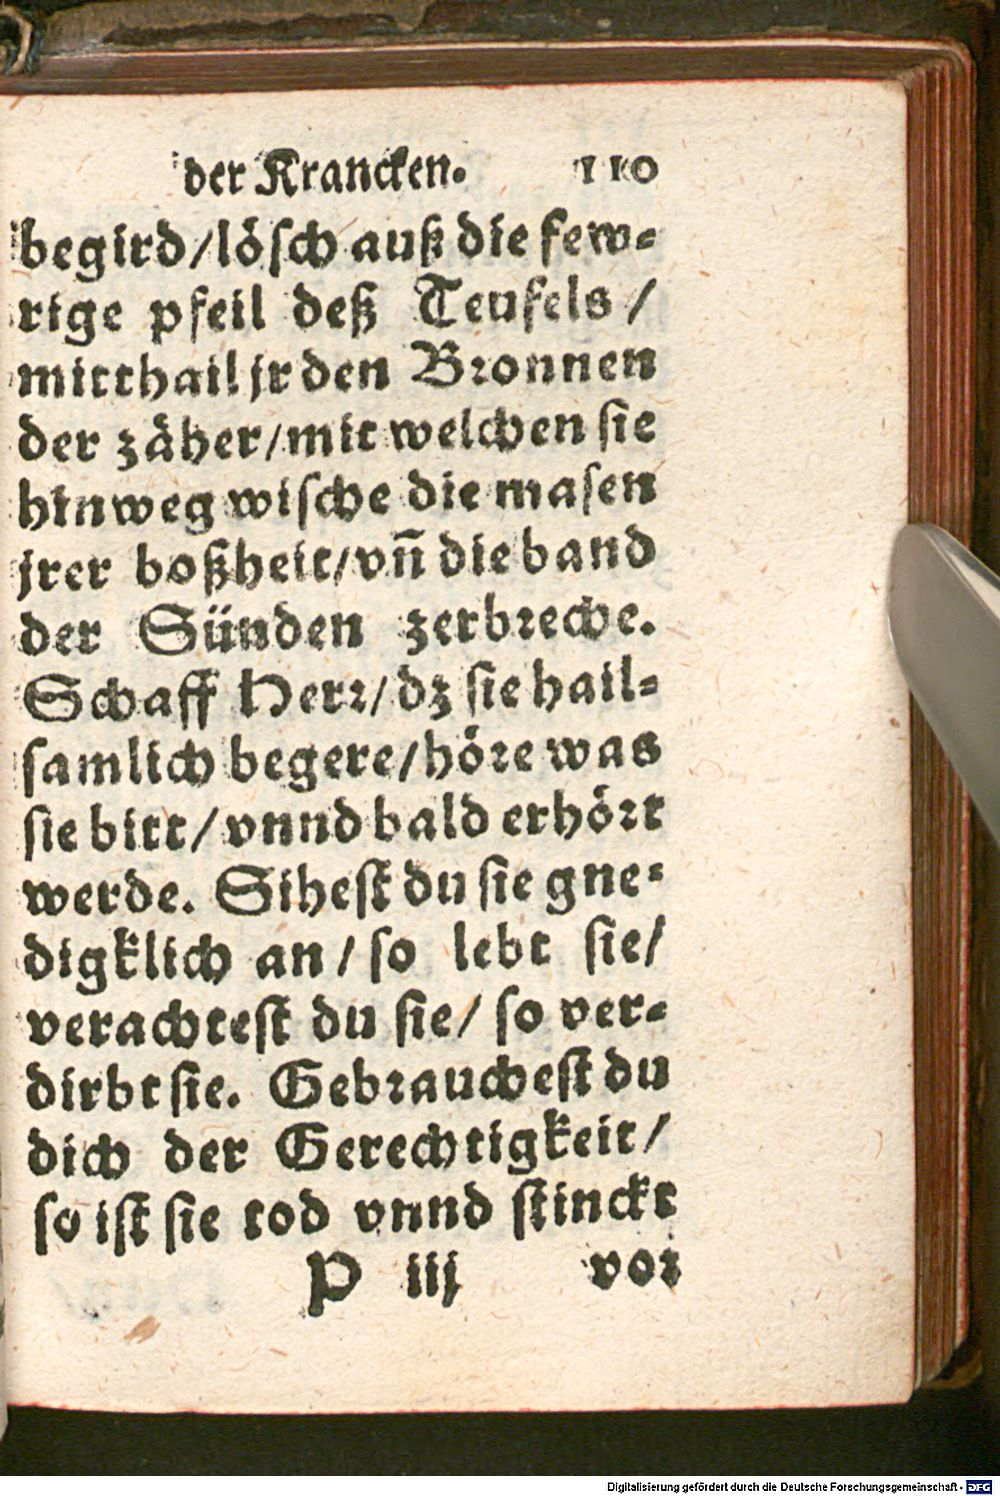 der Krancken. 110
begird/lösch auß die few-
rige pfeil deß Teufels/
mitthail jr den Bronnen
der zäher/mit welchen sie
hinweg wische die masen
jrer boßheit/vñ die band
der Sünden zerbreche.
Schaff Herr/dz sie hail-
samlich begere/höre was
sie bitt/vnnd bald erhört
werde. Sihest du sie gne-
digklich an/so lebt sie/
verachtest du sie/so ver-
dirbt sie. Gebrauchest du
dich der Gerechtigkeit/
so ist sie tod vnnd stinckt
P iij vor
Digitalisierung gefördert durch die Deutsche Forschungsgemeinschaft - DFG